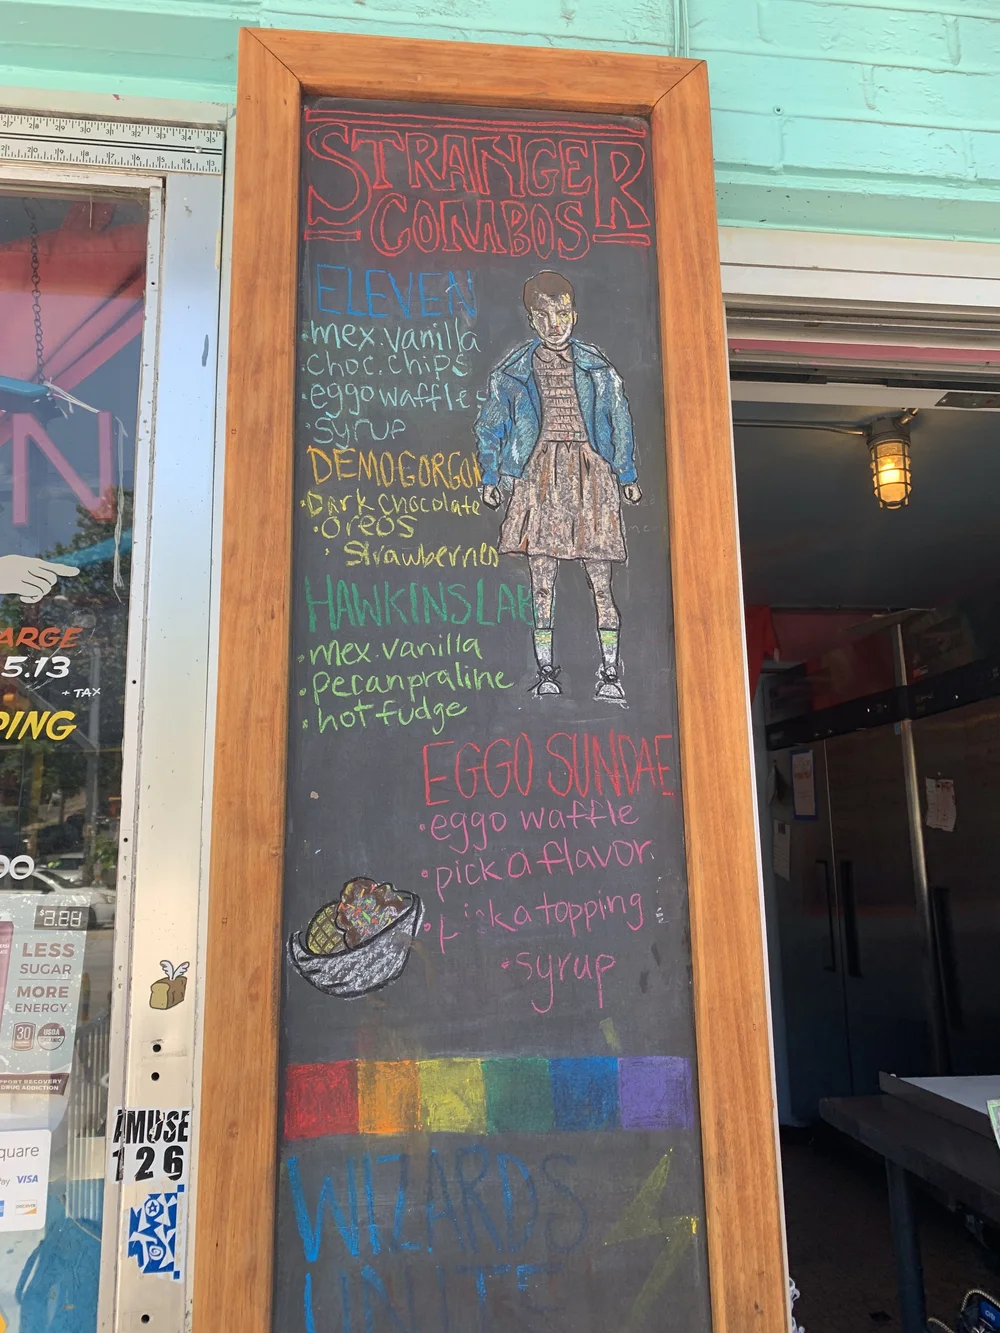 STRANGER
COMBOS
ELEVEN
•mex. vanilla
•choc. chips
•eggo waffles
•syrup
DEMOGORGON
•Dark chocolate
•oreos
•Strawberries
HAWKINS LAB
•mex. vanilla
•pecan praline
•hot fudge
EGGO SUNDAE
•eggo waffle
•pick a flavor
•pick a topping
•syrup
WIZARDS
UNITE
N
ARGE
5.13
+ TAX
PING
00
LESS
SUGAR
MORE
ENERGY
30
USDA
ORGANIC
PPORT RECOVERY
DRUG ADDICTION
quare
Pay VISA
DISCOVER
AMUSE
126